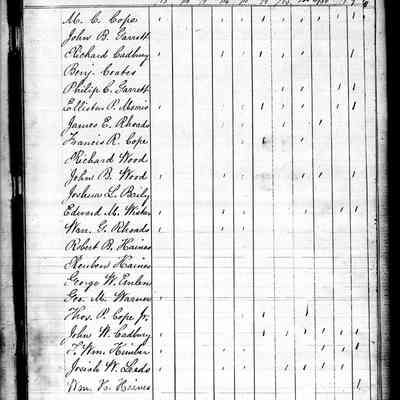 M. C. Cope
John B. Garrett
Richard Cadbury
Benj. Coates
Philip C. Garrett
Elliston P. Morris
James E. Rhoads
Francis R. Cope
Richard Wood
John B. Wood
Joshua L. Baily
Edward M. Wistar
Wm. G. Rhoads
Robert B. Haines
Reuben Haines
George W. Emlen
Geo. M. Warner
Thos. P. Cope Jr.
John W. Cadbury
T. Wm. Kimber
Josiah W. Leeds
Wm. H. Haines